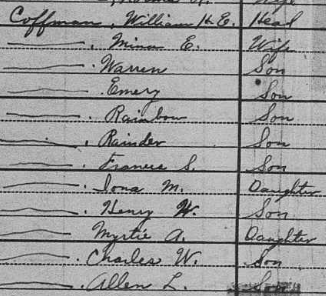 Wife
Coffman, William H. E. Head
———. Minn E. Wife
———. Warren Son
———. Emery Son
———. Rainbow Son
———. Rainder Son
———. Francis S. Son
———. Iona M. Daughter
———. Henry W. Son
———. Myrtie A. Daughter
———. Charles W. Son
———. Allen L. Son